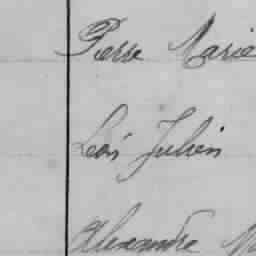 Pierre Marie
Léon Julien
Alexandre M